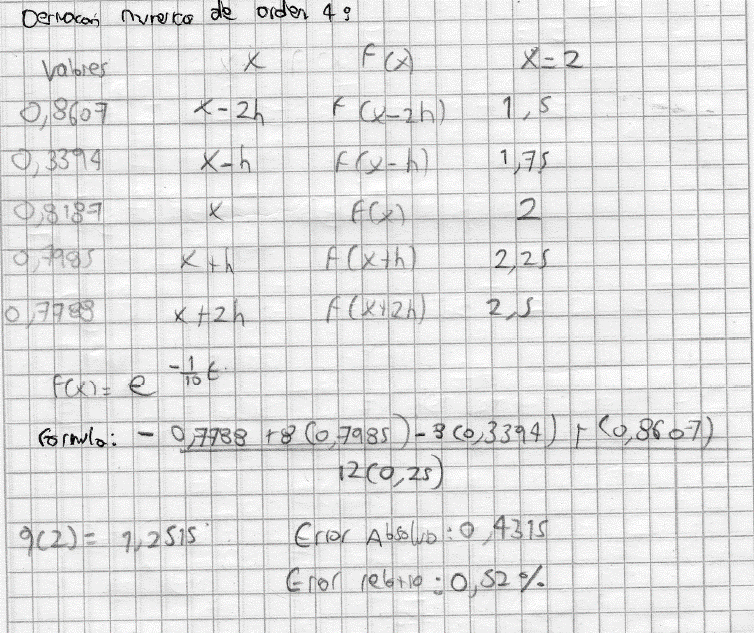 Derivacón numerica de orden 4:
Valores x f(x) x=2
0,8607 x-2h f(x-2h) 1,5
0,3394 x-h f(x-h) 1,75
0,8187 x f(x) 2
0,7985 x+h f(x+h) 2,25
0,7788 x+2h f(x+2h) 2,5
f(x) = e^{-\frac{1}{10}t}
Formula: - 0,7788 +8(0,7985)-8(0,3394)+(0,8607)
12(0,25)
9(2)= 1,2515 Error Absoluo: 0,4315
Error : 0,52%